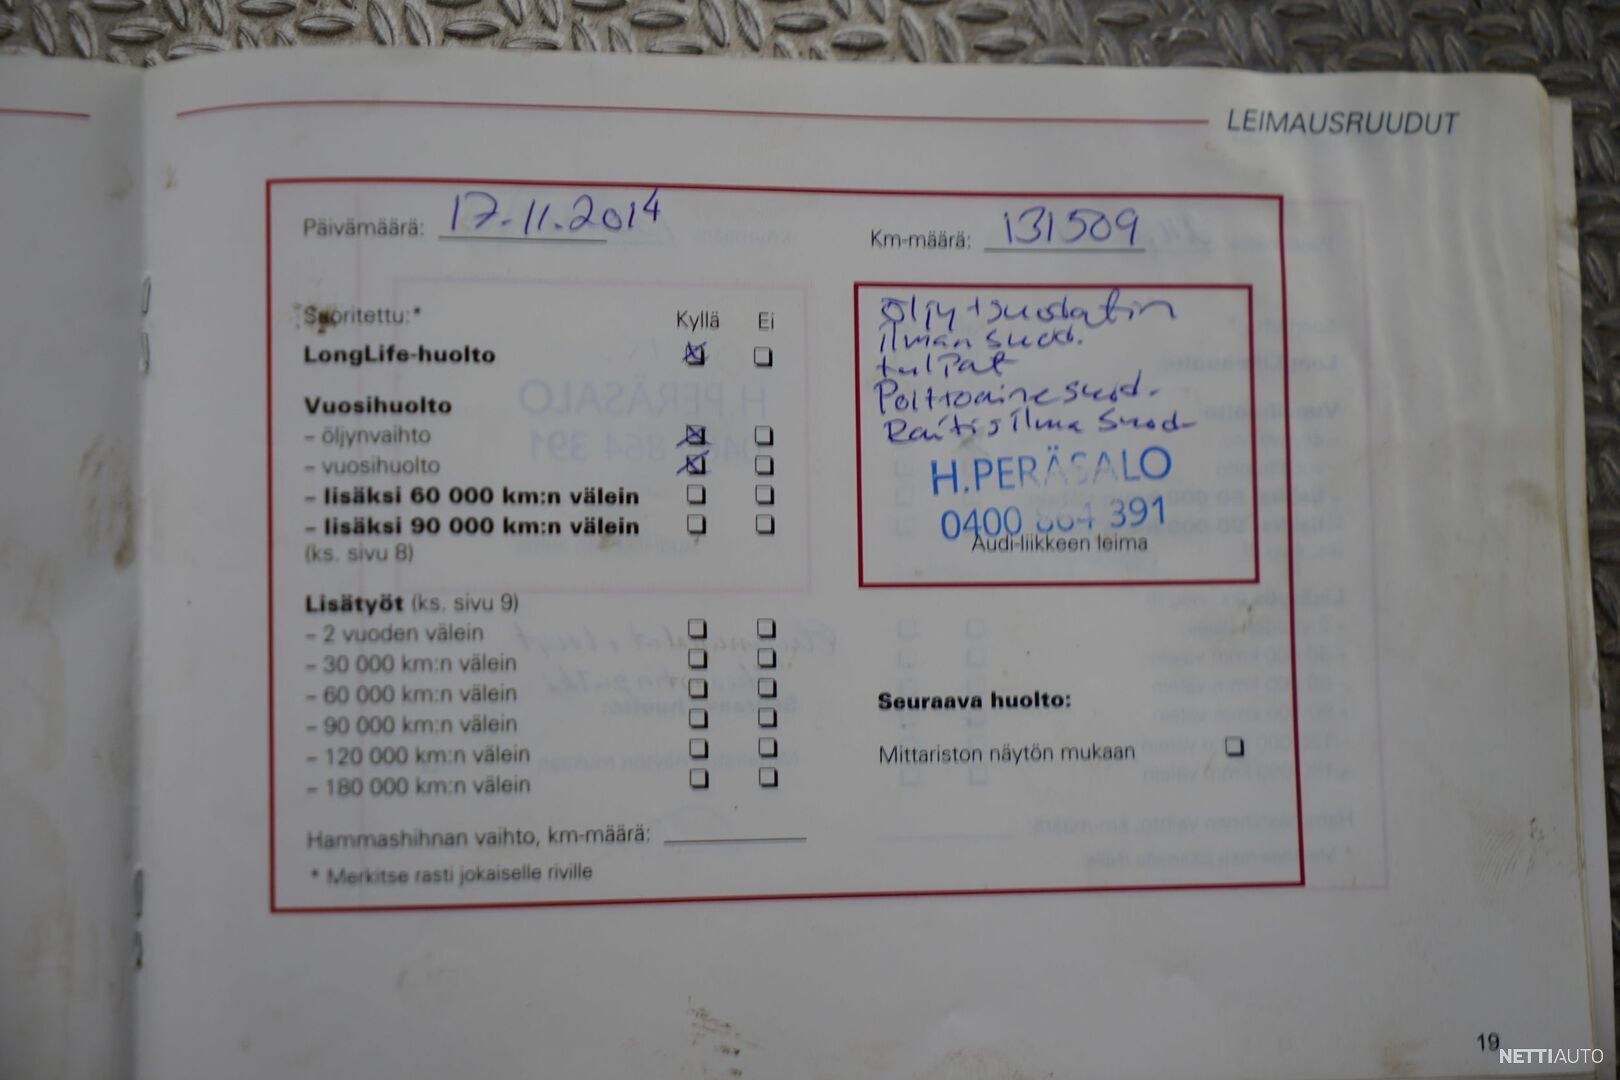 LEIMAUSRUUDUT
Päivämäärä: 17.11.2014
Km-määrä: 131509
Suoritettu:* Kyllä Ei
LongLife-huolto
Vuosihuolto
– öljynvaihto
– vuosihuolto
– lisäksi 60 000 km:n välein
– lisäksi 90 000 km:n välein
(ks. sivu 8)
Lisätyöt (ks. sivu 9)
– 2 vuoden välein
– 30 000 km:n välein
– 60 000 km:n välein
– 90 000 km:n välein
– 120 000 km:n välein
– 180 000 km:n välein
Hammashihnan vaihto, km-määrä:
* Merkitse rasti jokaiselle riville
öljy+suodatin
ilman suod.
tulpat
Polttoaine suod.
Raitis ilma suod-
H.PERÄSALO
0400 864 391
Audi-liikkeen leima
Seuraava huolto:
Mittariston näytön mukaan
19
NETTIAUTO